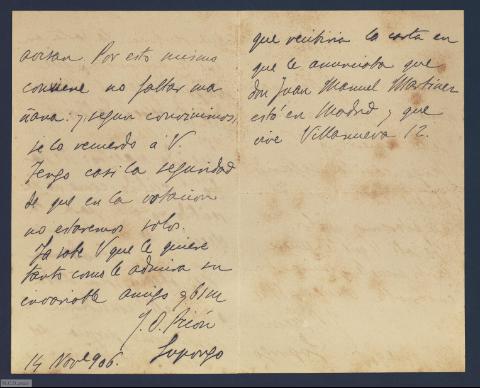 avisan. Por esto mismo
conviene no faltar ma
ñana: y segun convinimos,
se lo recuerdo á V.
Tengo casi la seguridad
de que en la votacion
no estaremos solos.
Ya sabe V que le quiere
tanto como le admira su
invariable amigo q b s m
J. O. Picón
14 Novbre 906.
Supongo
que recibiria la carta en
que le anunciaba que
don Juan Manuel Martinez
está en Madrid y que
vive Villanueva 12.